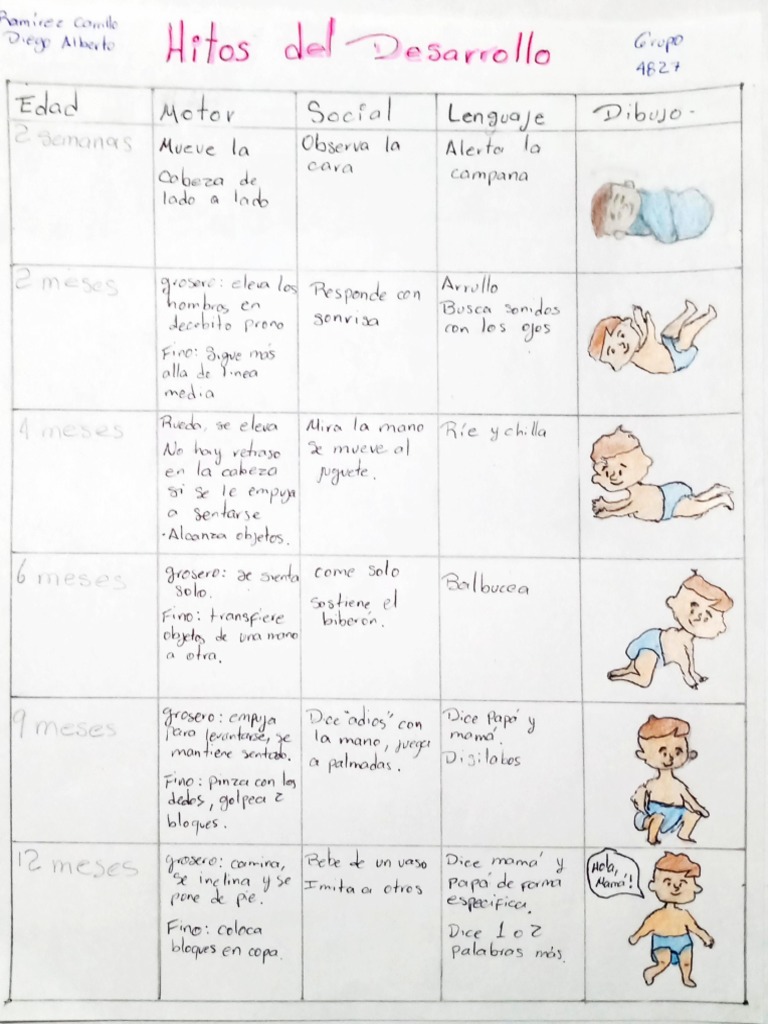 Ramírez Carrillo
Diego Alberto
Hitos del Desarrollo
Grupo
4827
Edad
Motor
Social
Lenguaje
Dibujo.
2 semanas
Mueve la
Cabeza de
lado a lado
Observa la
cara
Alerta la
campana
2 meses
grosero: eleva los
hombros en
decubito prono
Fino: Sigue más
alla de linea
media
Responde con
sonrisa
Arrullo
Busca sonidos
con los ojos
4 meses
Rueda, se eleva
No hay retraso
en la cabeza
si se le empuja
a sentarse
·Alcanza objetos.
Mira la mano
Se mueve al
juguete.
Ríe y chilla
6 meses
grosero: se sienta
solo.
Fino: transfiere
objetos de una mano
a otra.
come solo
Sostiene el
biberón.
Balbucea
9 meses
grosero: empuja
para levantarse, se
mantiene sentado.
Fino: pinza con los
dedos, golpea 2
bloques.
Dice "adios" con
la mano, juega
a palmadas.
Dice Papá y
mamá.
Disilabos
12 meses
grosero: camina,
se inclina y se
pone de pie.
Fino: coloca
bloques en copa.
Bebe de un vaso
Imita a otros
Dice mamá y
papá de forma
especifica.
Dice 1 o 2
palabras más.
Hola,
Mamá!